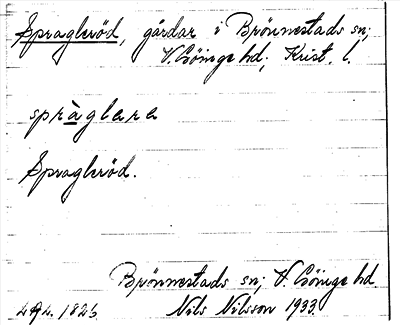 Spragleröd, gårdar i Brönnestads sn;
V. Göinge hd; Krist. l.
spràglara
Spragleröd.
Brönnestads sn; V. Göinge hd
1826. Nils Nilsson 1933.